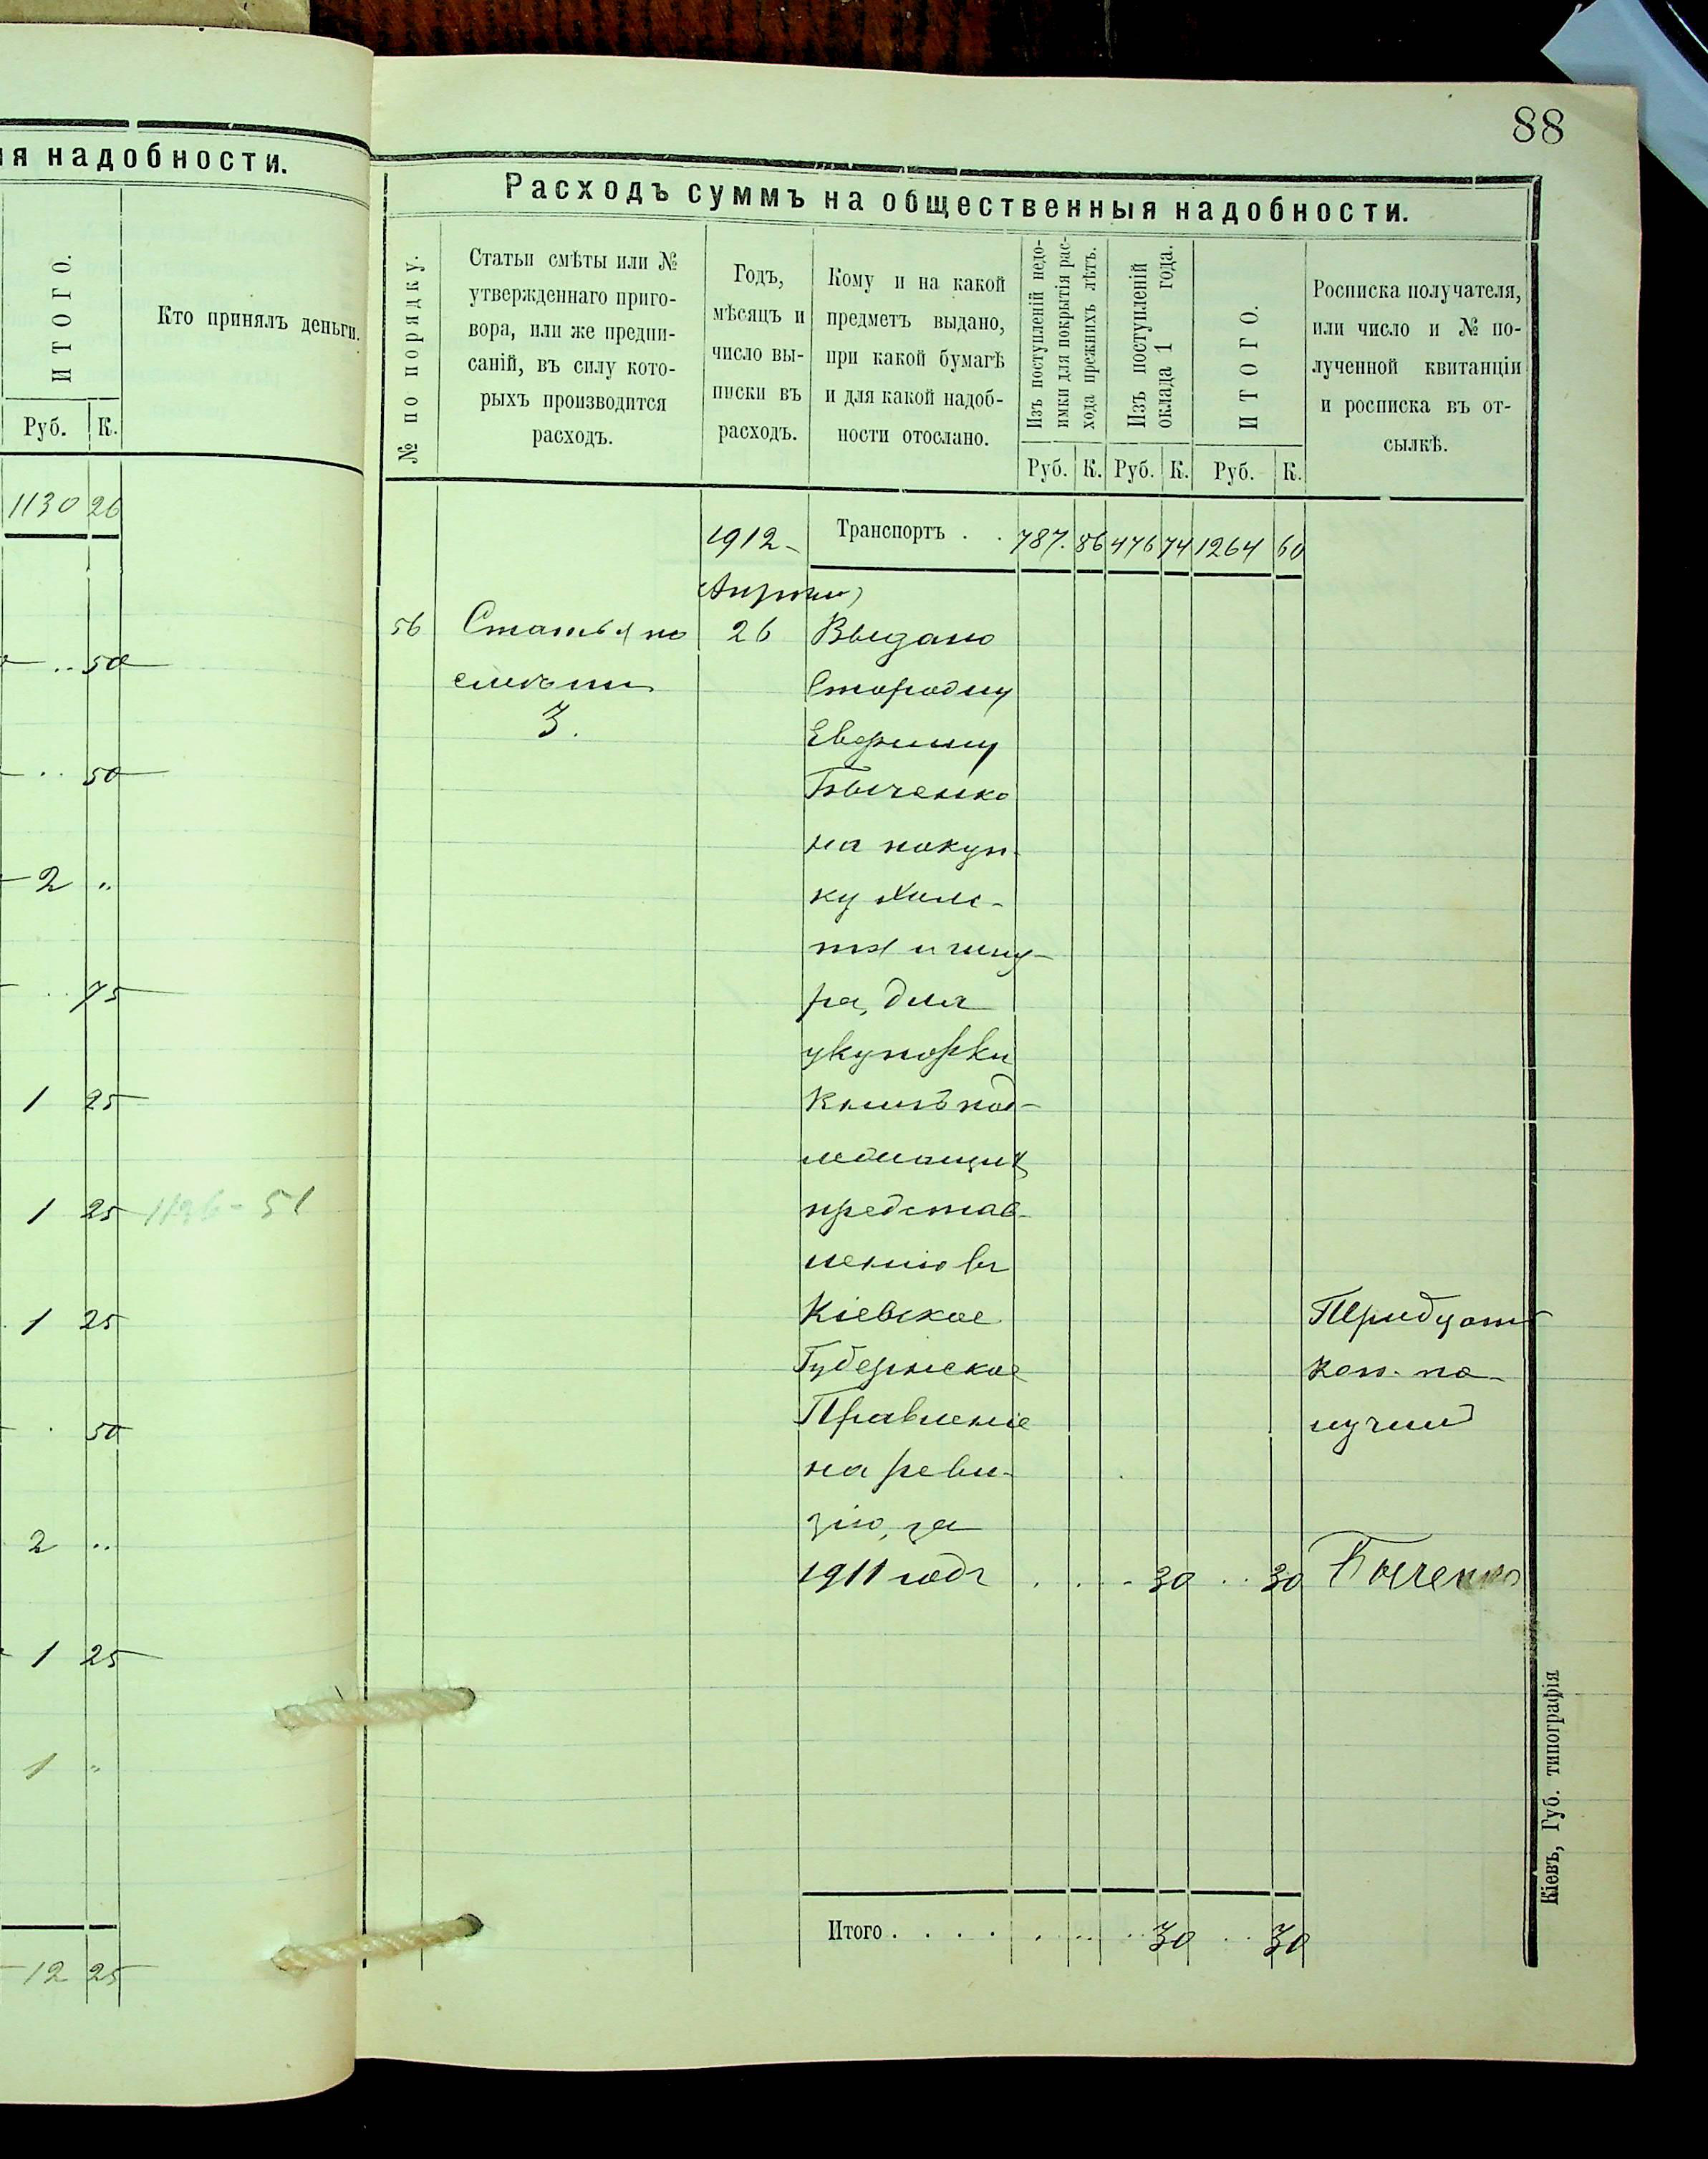 ія надобности.
ИТОГО.
Кто принялъ деньги.
Руб. К.
1130 26
.. 50
.. 50
2 ..
.. 75
1 25
1 25 1136-51
1 25
. 50
2 ..
1 25
1 "
12 25
88
Расходъ суммъ на общественныя надобности.
№ по порядку.
Статьи смѣты или №
утвержденнаго приго-
вора, или же предпи-
саній, въ силу кото-
рыхъ производится
расходъ.
Годъ,
мѣсяцъ и
число вы-
писки въ
расходъ.
Кому и на какой
предметъ выдано,
при какой бумагѣ
и для какой надоб-
ности отослано.
Изъ поступленій недо-
имки для покрытія рас-
хода прежнихъ лѣтъ.
Изъ поступленій
оклада 1 года.
ИТОГО.
Росписка получателя,
или число и № по-
лученной квитанціи
и росписка въ от-
сылкѣ.
Руб. К. Руб. К. Руб. К.
1912 Транспортъ . . 787. 86 476 74 1264 60
Апрѣля
56 Статья по 26 Выдано
смѣти Сторожу
3.
Быченко
на покуп-
ку холс-
та и шну-
ра, для
укупорки
Книгъ под-
лежащихъ
представ-
ленію въ
Кіевское Тридцать
Губернское коп. по-
Правленіе лучилъ
на реви-
зію, за
1911 годъ . . . 30 .. 30 Быченко
Итого . . . . . ... .. 30 .. 30
Кіевъ, Губ. типографія